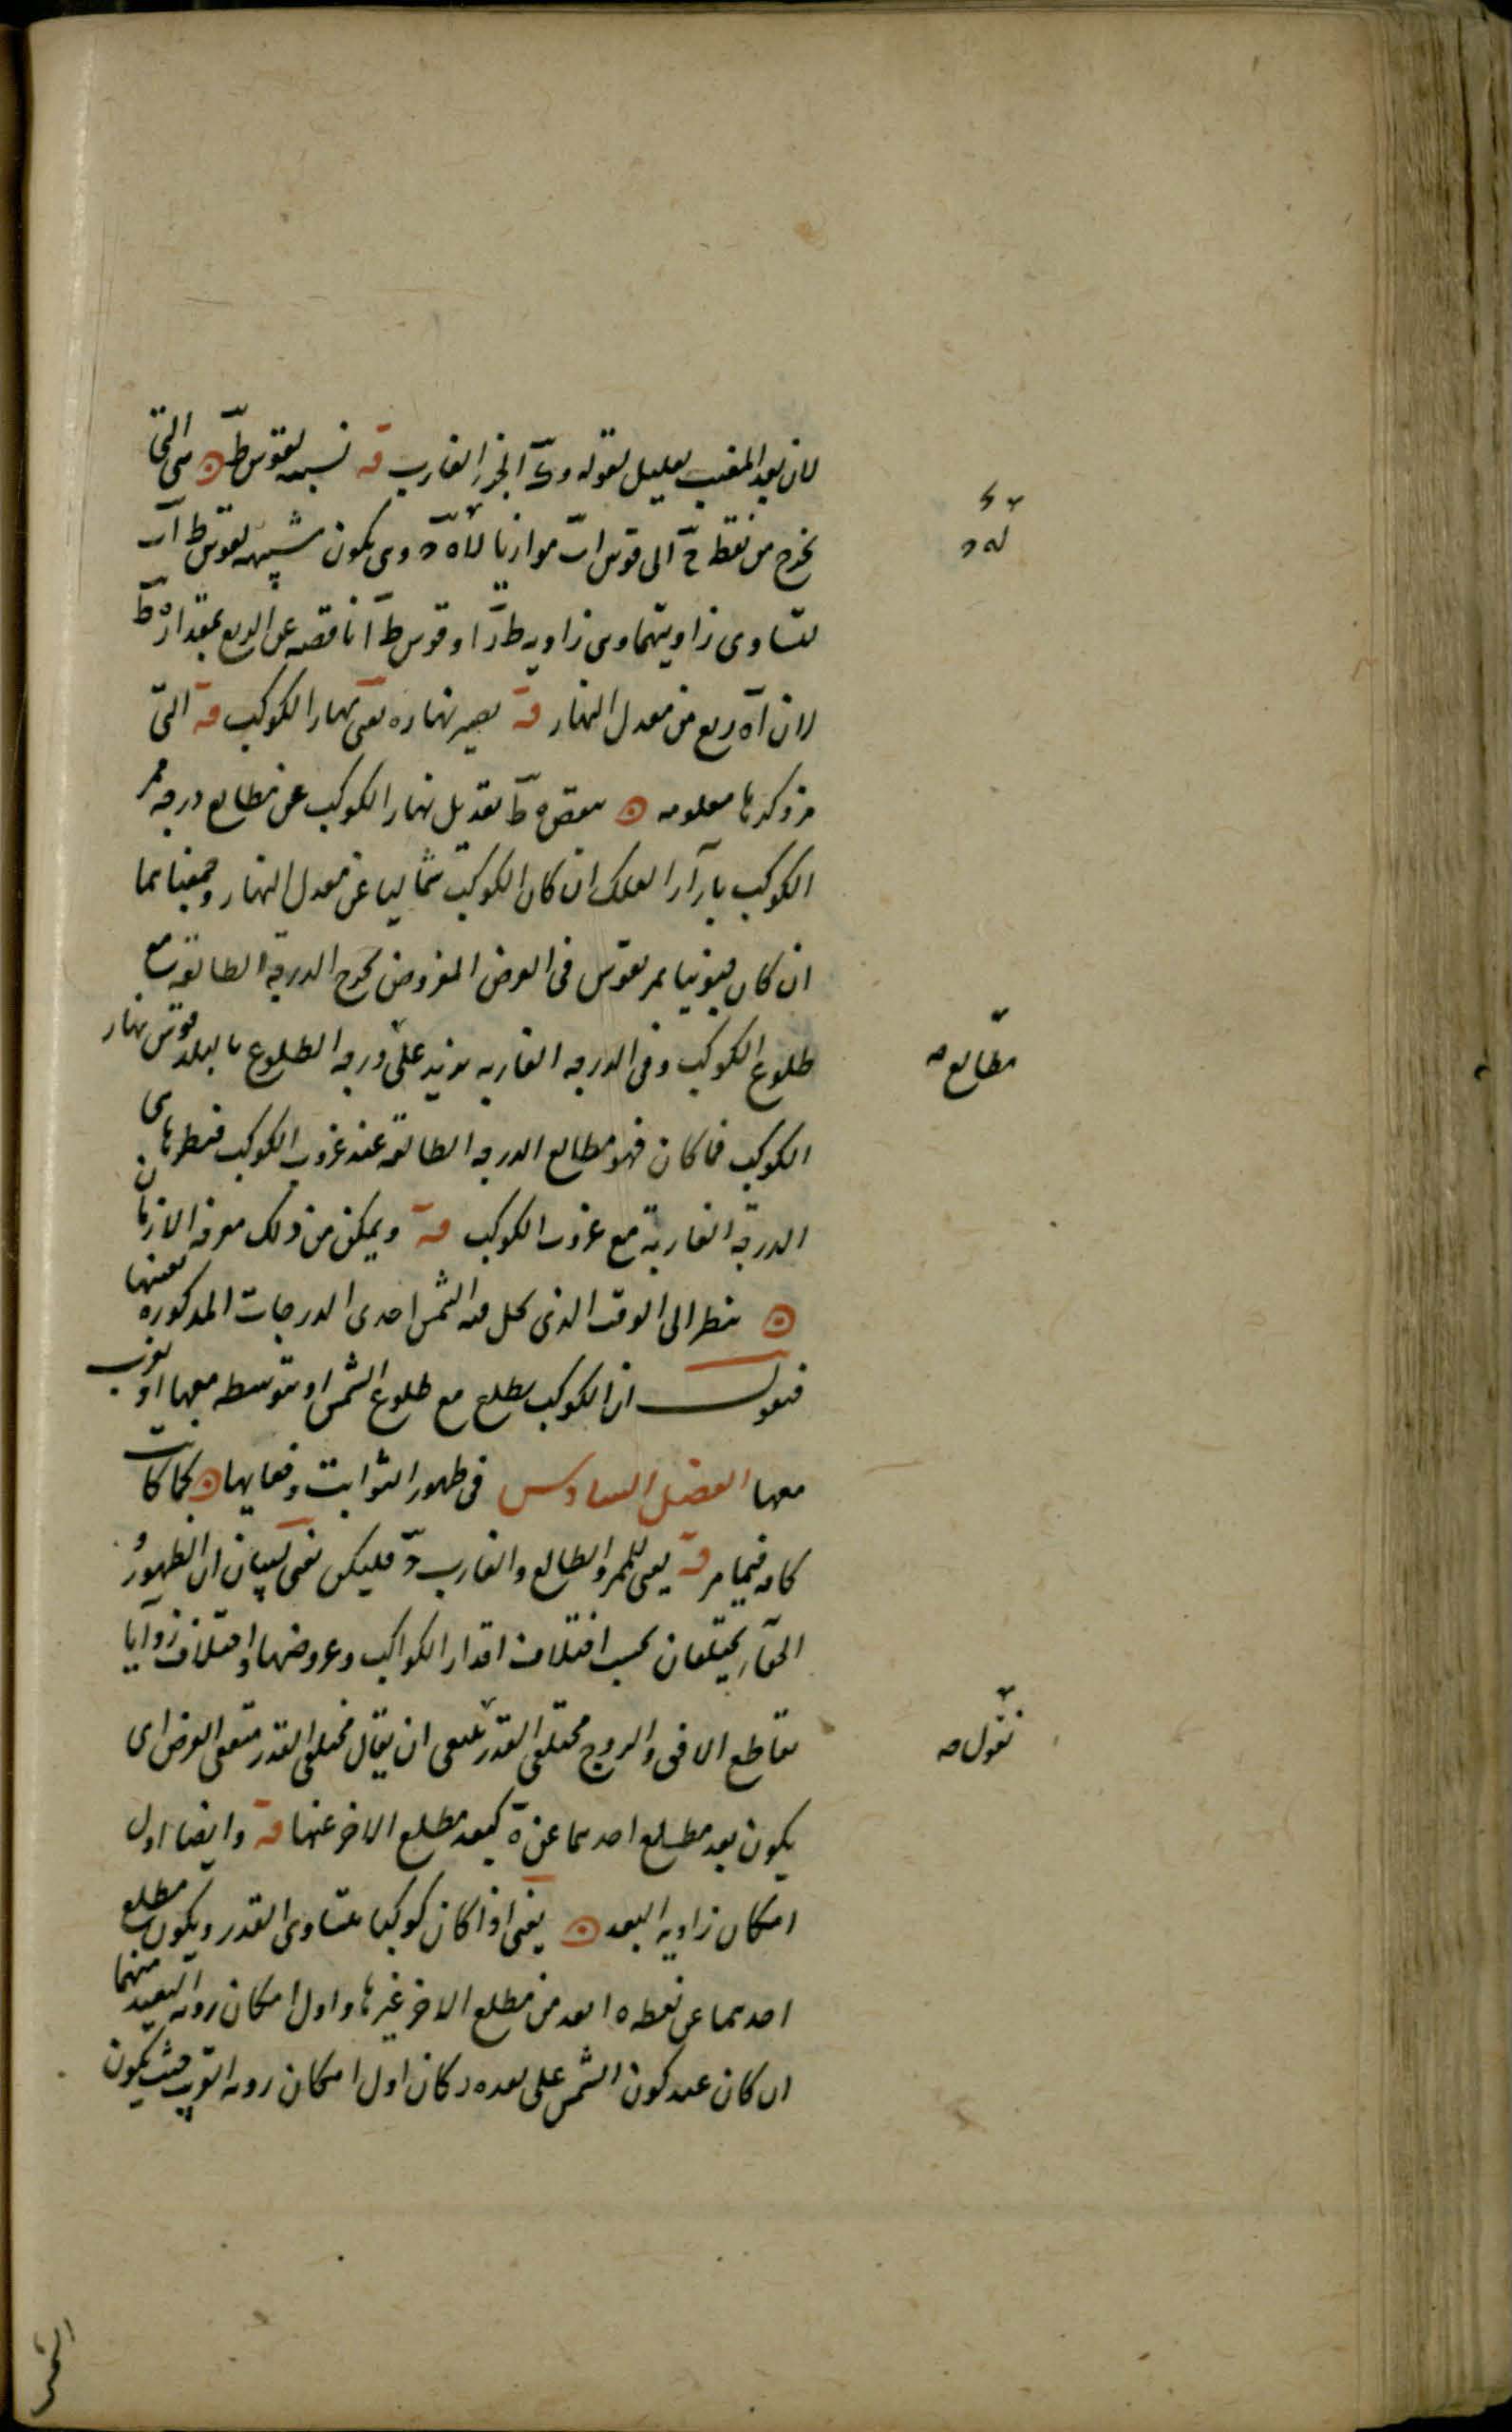 لان بعد المغيب تعليل لقوله وى الجزء الغارب قه نسبه لقوس ط هى التى
يخرج من نقطة ح الى قوس ا موازيا وهى يكون شبيهه لقوس ط ا
لتساوى زاويتهما وهى زاويه ط ر ا وقوس ط ا ناقصه عن الربع بمقدار ه ط
لان ا ه ربع من معدل النهار قه يصير نهاره يعنى نهار الكوكب قه التى
مر ذكرها معلومه ينقص ه ط تعديل نهار الكوكب عن مطالع درجه ممر
الكوكب الفلك ان كان الكوكب شماليا عن معدل النهار وجمعناهما
ان كان جنوبيا ثم يقوس فى العرض المفروض يخرج الدرجة الطالعة مع
طلوع الكوكب وفى الدرجه الغاربه يزيد على درجه الطلوع بالبلد قوس نهار
الكوكب فما كان فهو مطالع الدرجه الطالعه عند غروب الكوكب فنظيرها هى
الدرجة الغاربة مع غروب الكوكب قه ويمكن من ذلك معرفه الازمان
ينظر الى الوقت الذى تحل فيه الشمس احدى الدرجات المذكوره بعينها
فيقول ان الكوكب يطلع مع طلوع الشمس او يتوسطه معها او يغرب
معها الفصل السادس فى ظهور الثوابت وخفايها كما كانت
كافه فيما مر قه يعنى للممر والطالع والغارب فليكن يعنى لبيان ان الظهور و
الخفاء يختلفان بحسب اختلاف اقدار الكواكب وعروضها واختلاف زوايا
تقاطع الافق والبروج مختلفى القدر ينبغى ان يقال مختلفى القدر متفقى العرض اى
يكون بعد مطلع احدهما عن ه كبعد مطلع الاخر عنها قه وايضا اول
امكان زاويه البعد يعنى اذا كان كوكبا متساوى القدر ويكون مطلع
احدهما عن نقطه ه ابعد من مطلع الاخر غيرها واول امكان رويه البعيد منهما
ان كان عند كون الشمس على بعد ه ر كان اول امكان رويه القريب حيث يكون
مطالع صح
نقول صح
الشمس